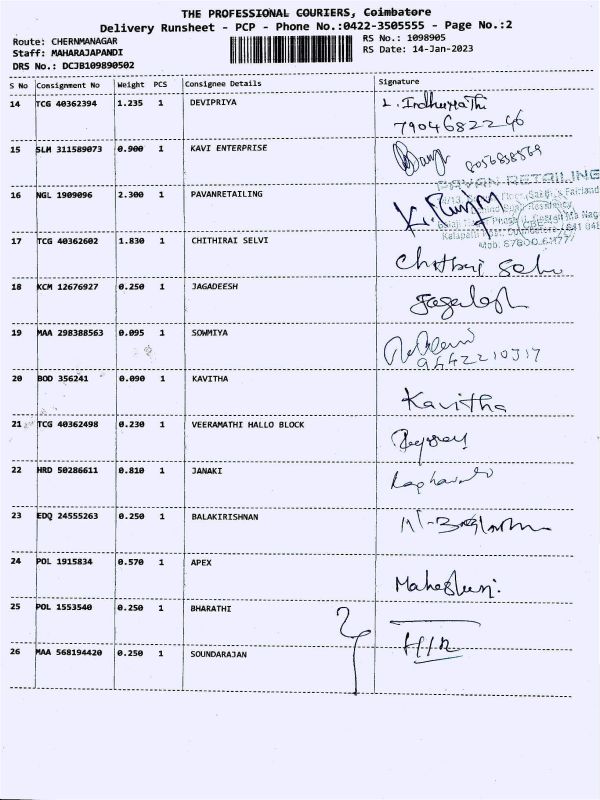 THE PROFESSIONAL COURIERS, Coimbatore
Delivery Runsheet - PCP - Phone No.:0422-3505555 - Page No.:2
Route: CHERNMANAGAR
RS No.: 1098905
Staff: MAHARAJAPANDI
RS Date: 14-Jan-2023
DRS No.: DCJB109890502
S No Consignment No Weight PCS Consignee Details Signature
14 TCG 40362394 1.235 1 DEVIPRIYA L. Indhumathi
7904682246
15 SLM 311589073 0.900 1 KAVI ENTERPRISE 8056858569
16 NGL 1909096 2.300 1 PAVANRETAILING
PAVAN RETAILING
17 TCG 40362602 1.830 1 CHITHIRAI SELVI Chithirai Selvi
18 KCM 12676927 0.250 1 JAGADEESH Jagadesh
19 MAA 298388563 0.095 1 SOWMIYA
9442210317
20 BOD 356241 0.090 1 KAVITHA Kavitha
21 TCG 40362498 0.230 1 VEERAMATHI HALLO BLOCK
22 HRD 50286611 0.810 1 JANAKI
23 EDQ 24555263 0.250 1 BALAKIRISHNAN
24 POL 1915834 0.570 1 APEX
25 POL 1553540 0.250 1 BHARATHI
26 MAA 568194420 0.250 1 SOUNDARAJAN